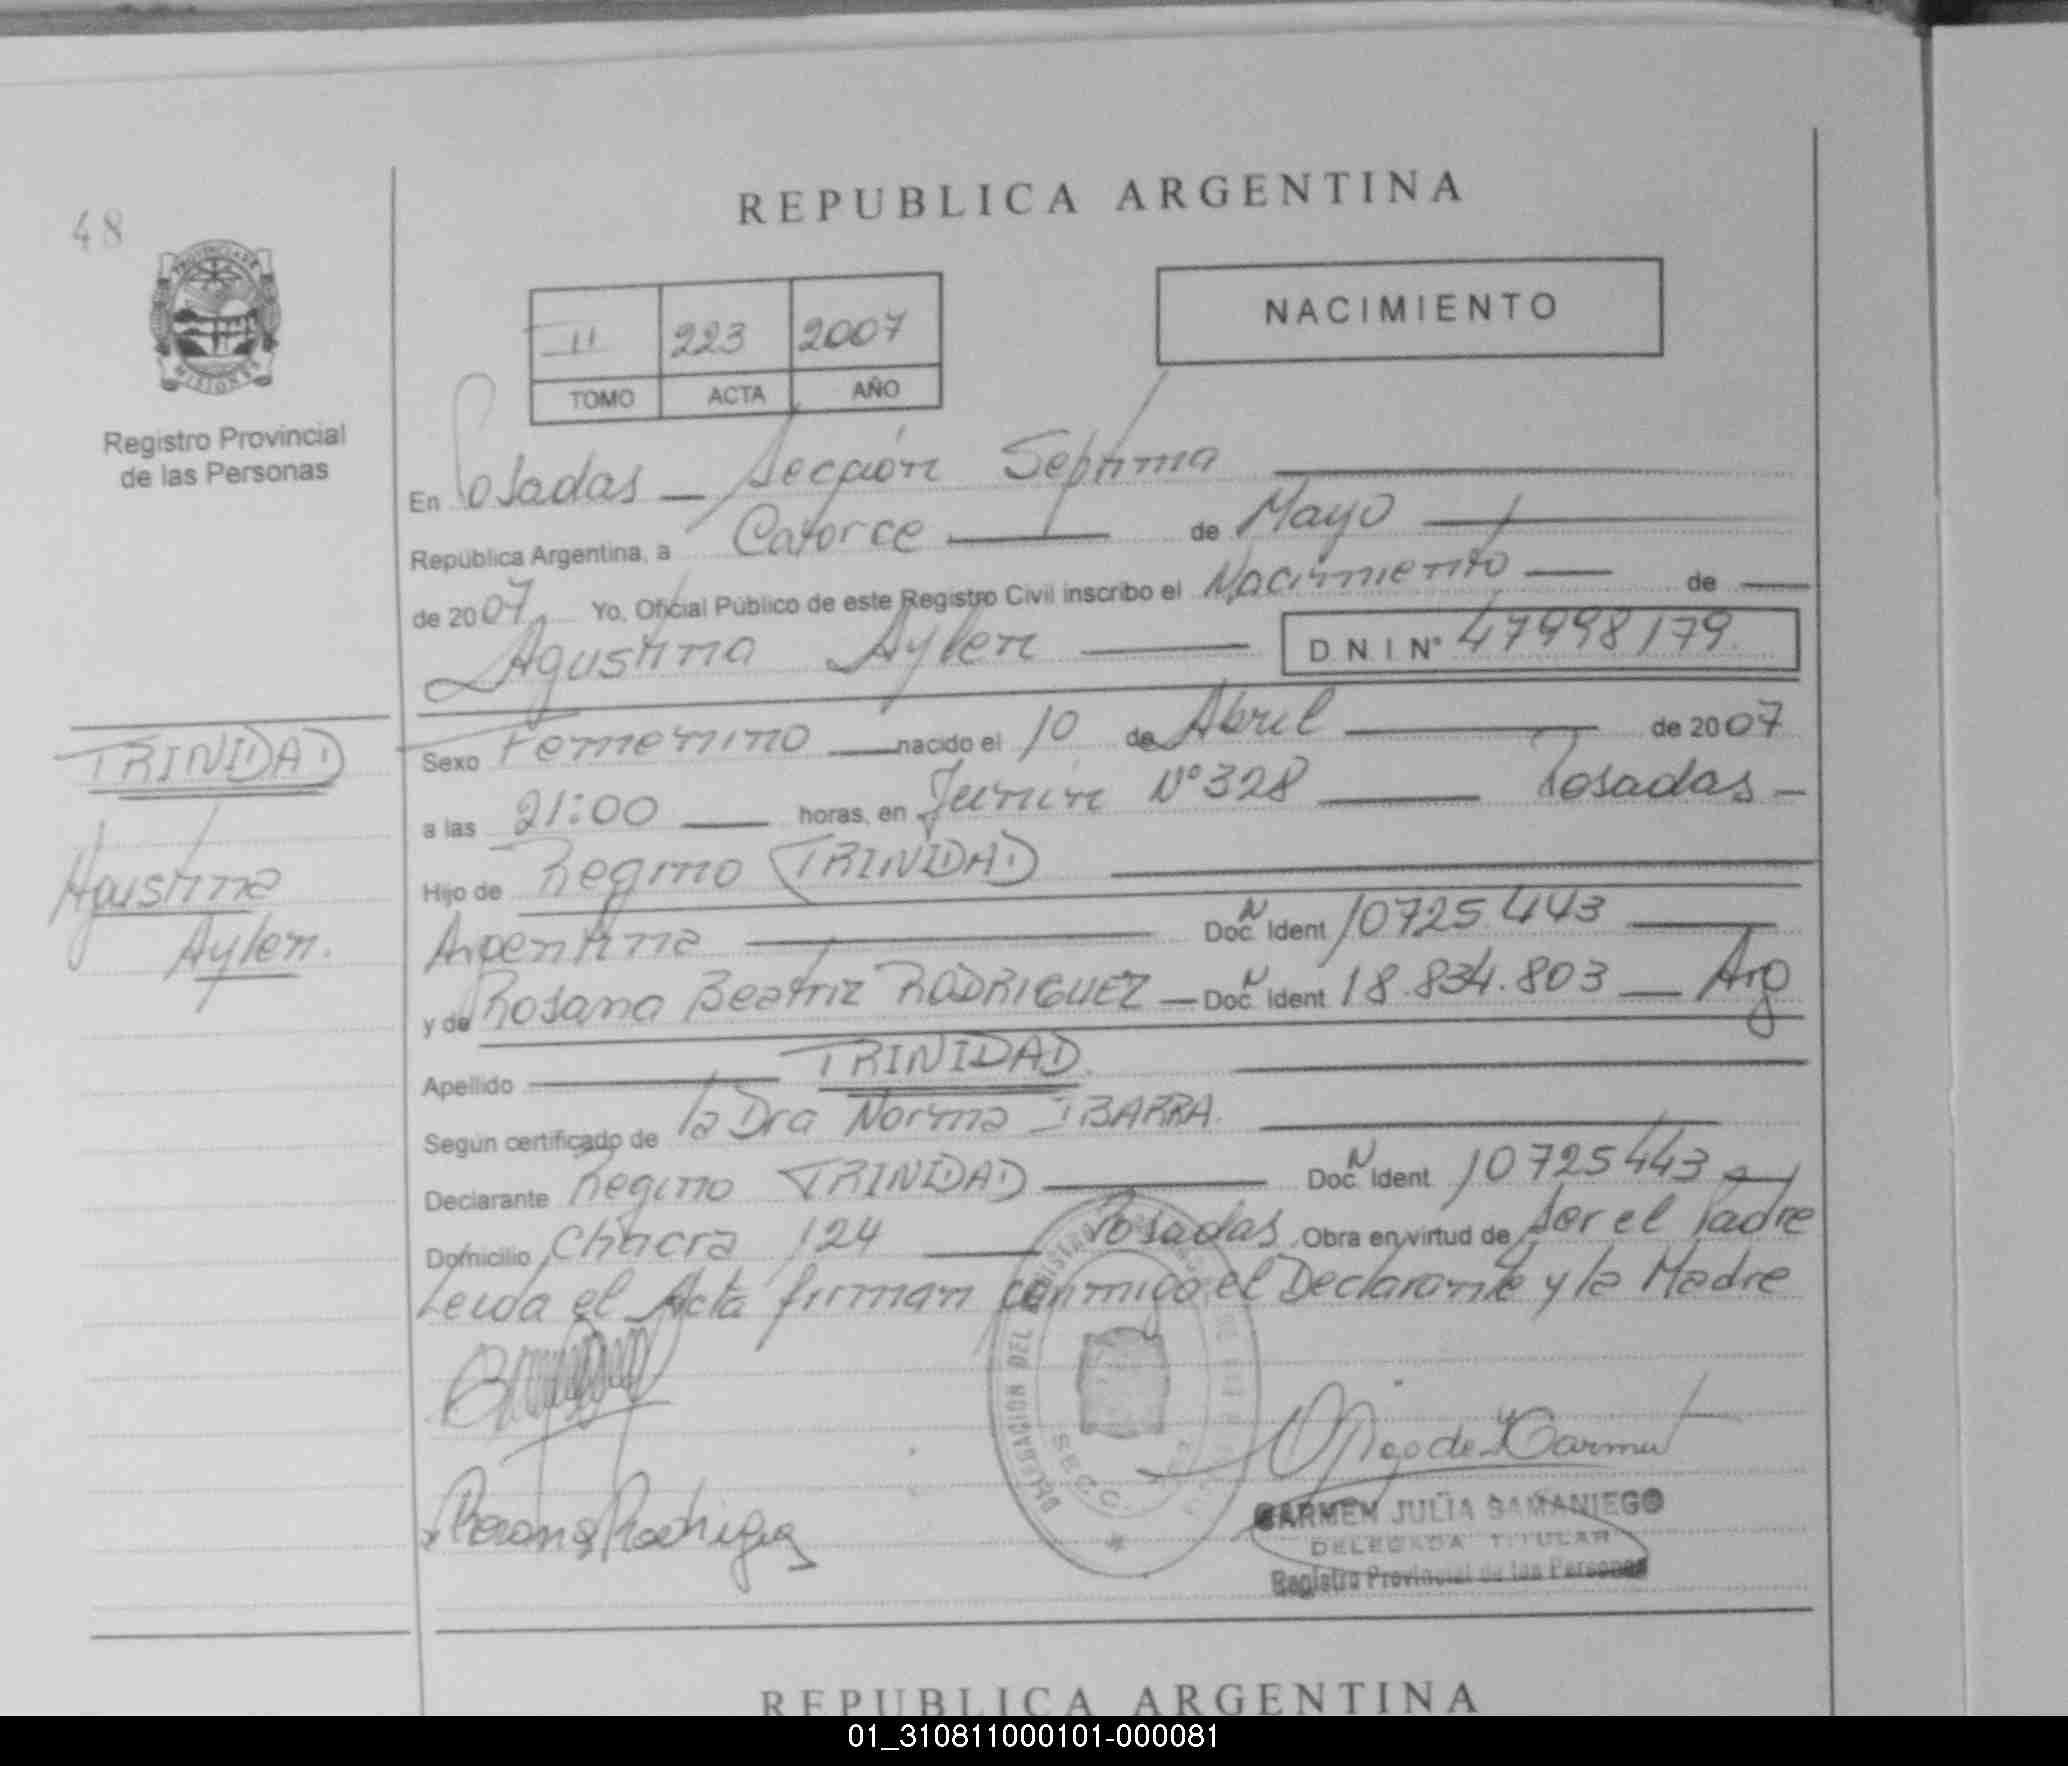 48
PROVINCIA DE
MISIONES
Registro Provincial
de las Personas
REPUBLICA ARGENTINA
NACIMIENTO
II 223 2007
TOMO ACTA AÑO
En Posadas - Sección Séptima
República Argentina, a Catorce de Mayo
de 2007 Yo, Oficial Público de este Registro Civil inscribo el Nacimiento de
Agustina Aylen D.N.I Nº 47998179.
TRINIDAD
Agustina
Aylen.
Sexo Femenino nacido el 10 de Abril de 2007
a las 21:00 horas, en Junín Nº 328 Posadas -
Hijo de Regino TRINIDAD
Argentina Doc N Ident 10725.443
y de Rosana Beatriz RODRIGUEZ - Doc N Ident 18.834.803 - Arg
Apellido TRINIDAD.
Según certificado de la Dra Norma IBARRA.
Declarante Regino TRINIDAD Doc N Ident 10725443
Domicilio Chacra 124 Posadas. Obra en virtud de ser el Padre
Leida el Acta firman conmigo el Declarante y la Madre
DELEGACION DEL
SECC.
Rosana Rodriguez
CARMEN JULIA SAMANIEGO
DELEGADA TITULAR
Registro Provincial de las Personas
REPUBLICA ARGENTINA
01_310811000101-000081